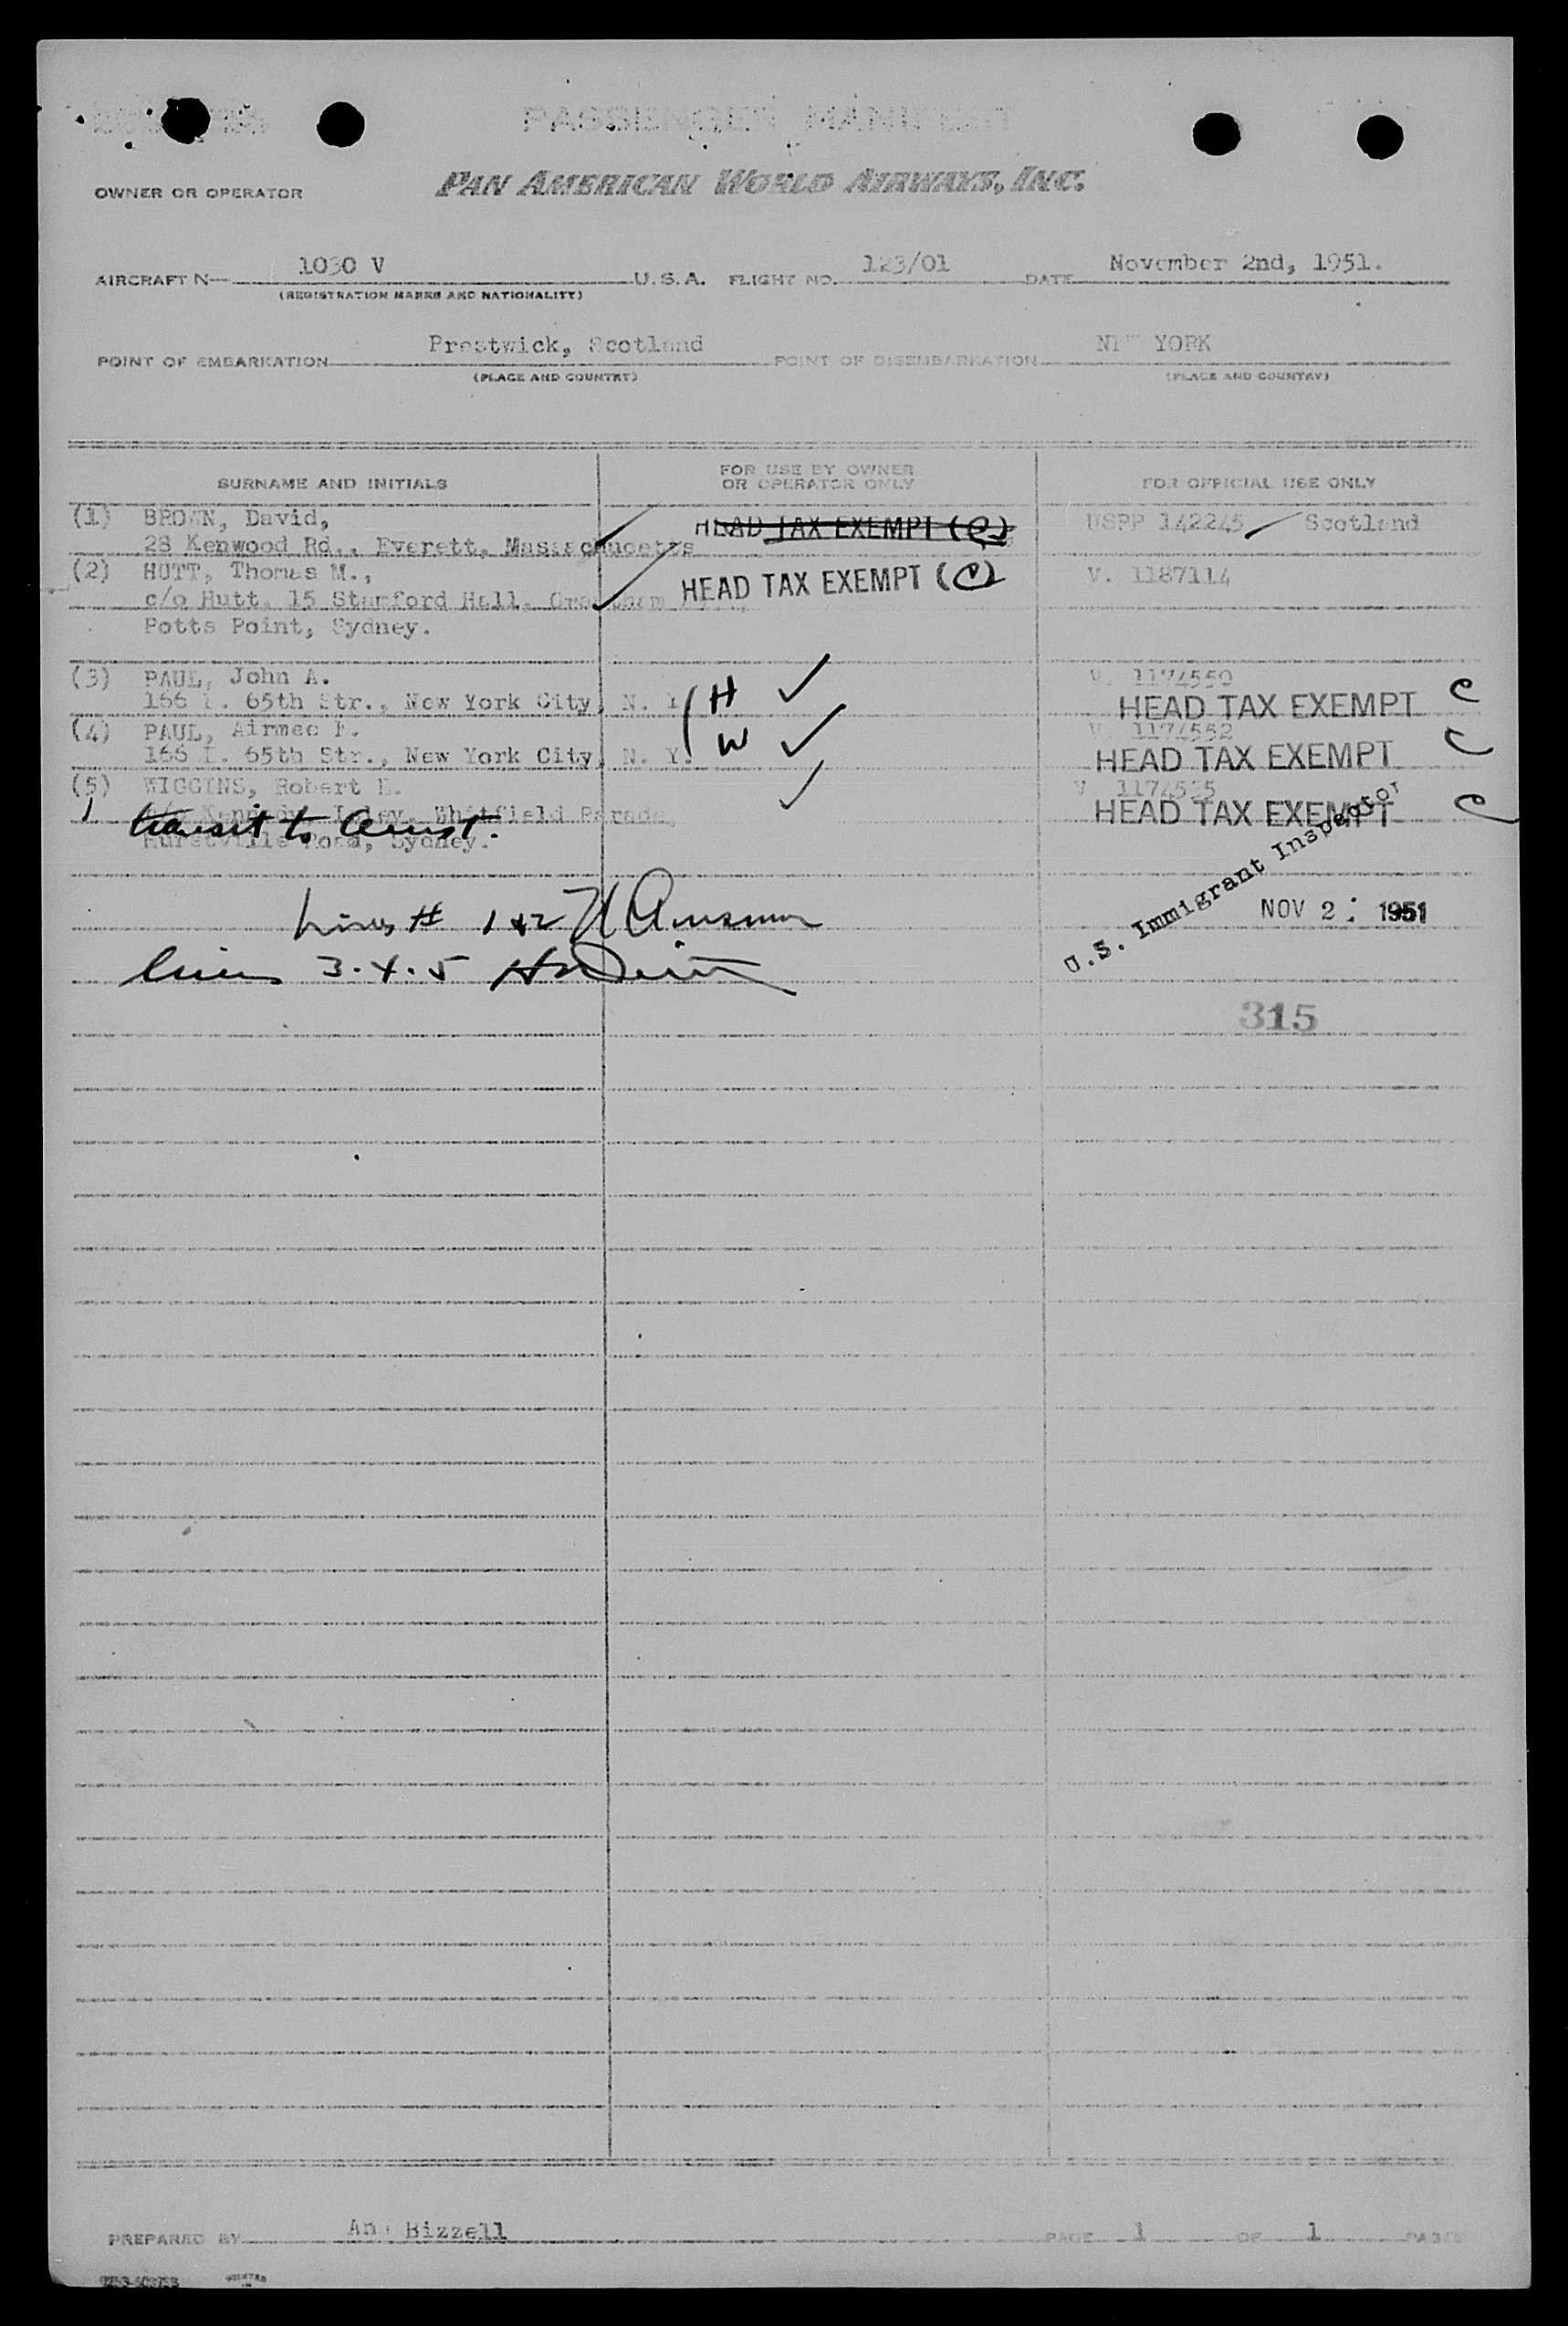 PASSENGER MANIFEST
OWNER OR OPERATOR PAN AMERICAN WORLD AIRWAYS, INC.
AIRCRAFT N— 1030 V U. S. A. FLIGHT NO. 123/01 DATE November 2nd, 1951.
(REGISTRATION MARKS AND NATIONALITY)
POINT OF EMBARKATION Prestwick, Scotland POINT OF DISEMBARKATION NEW YORK
(PLACE AND COUNTRY) (PLACE AND COUNTRY)
SURNAME AND INITIALS FOR USE BY OWNER OR OPERATOR ONLY FOR OFFICIAL USE ONLY
(1) BROWN, David, HEAD TAX EXEMPT (C) USPP 142245 Scotland
28 Kenwood Rd., Everett, Massachucetts
(2) HUTT, Thomas M., HEAD TAX EXEMPT (C) V. 1187114
c/o Hutt, 15 Stamford Hall,
Potts Point, Sydney.
(3) PAUL, John A. V. 1174550
166 E. 65th Str., New York City, N. Y. H HEAD TAX EXEMPT C
(4) PAUL, Airmee F. V. 1174552
166 E. 65th Str., New York City, N. Y. W HEAD TAX EXEMPT C
(5) WIGGINS, Robert E. V
Whitfield Parade, HEAD TAX EXEMPT C
transit to Aust.
Hurstville Road, Sydney.
U.S. Immigrant Inspector
Lines # 1 & 2
NOV 2 : 1951
Lines 3 . 4 . 5
315
PREPARED BY Bizzell PAGE 1 OF 1 PAGES